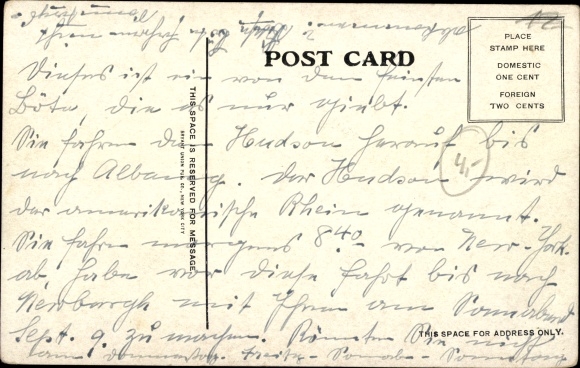 POST CARD
PLACE
STAMP HERE
DOMESTIC
ONE CENT
FOREIGN
TWO CENTS
THIS SPACE IS RESERVED FOR MESSAGE
THIS SPACE FOR ADDRESS ONLY.
4,-
Dieses ist ein von den feinsten
Böte, die es nur giebt.
Sie fahren den Hudson herauf bis
nach Albany. Der Hudson wird
der amerikanische Rhein genannt.
Sie fahren morgens 8.40 von New-York
ab, habe vor diese Fahrt bis nach
Newburgh mit Ihnen am Sonnabend
Sept. 9. zu machen. Könnten Sie nicht